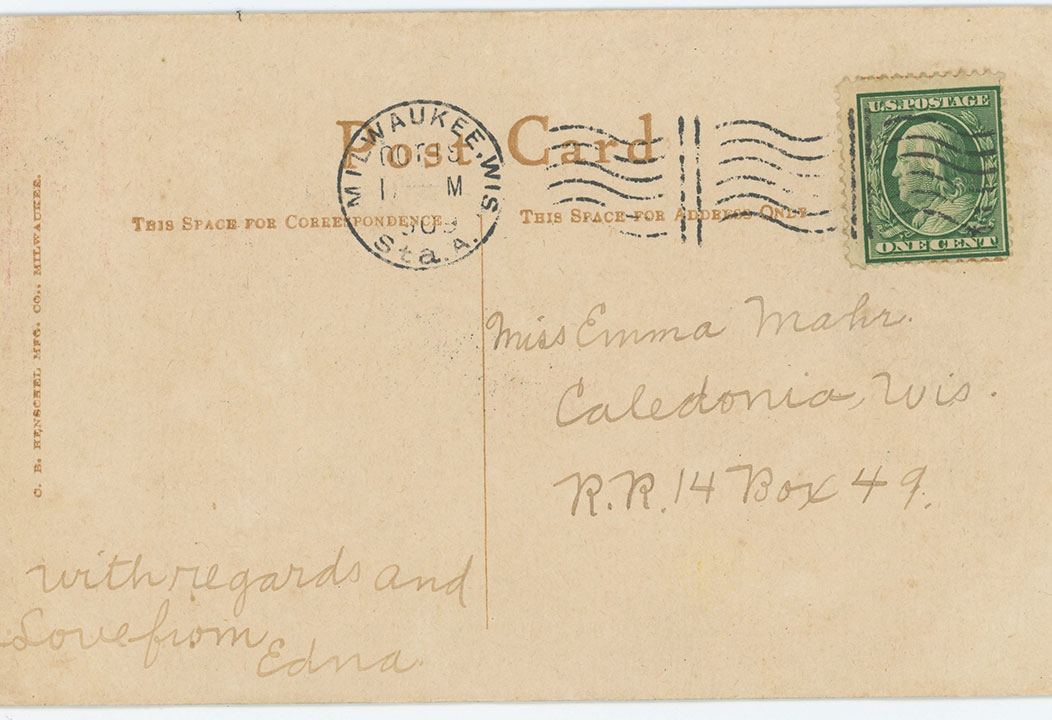 Post Card
MILWAUKEE, WIS
Sta. A.
U.S. POSTAGE
ONE CENT
THIS SPACE FOR CORRESPONDENCE
THIS SPACE FOR ADDRESS ONLY
C. E. HENSCHEL MFG. CO., MILWAUKEE.
Miss Emma Mahr.
Caledonia, Wis.
R.R. 14 Box 49.
with regards and
Love from
Edna